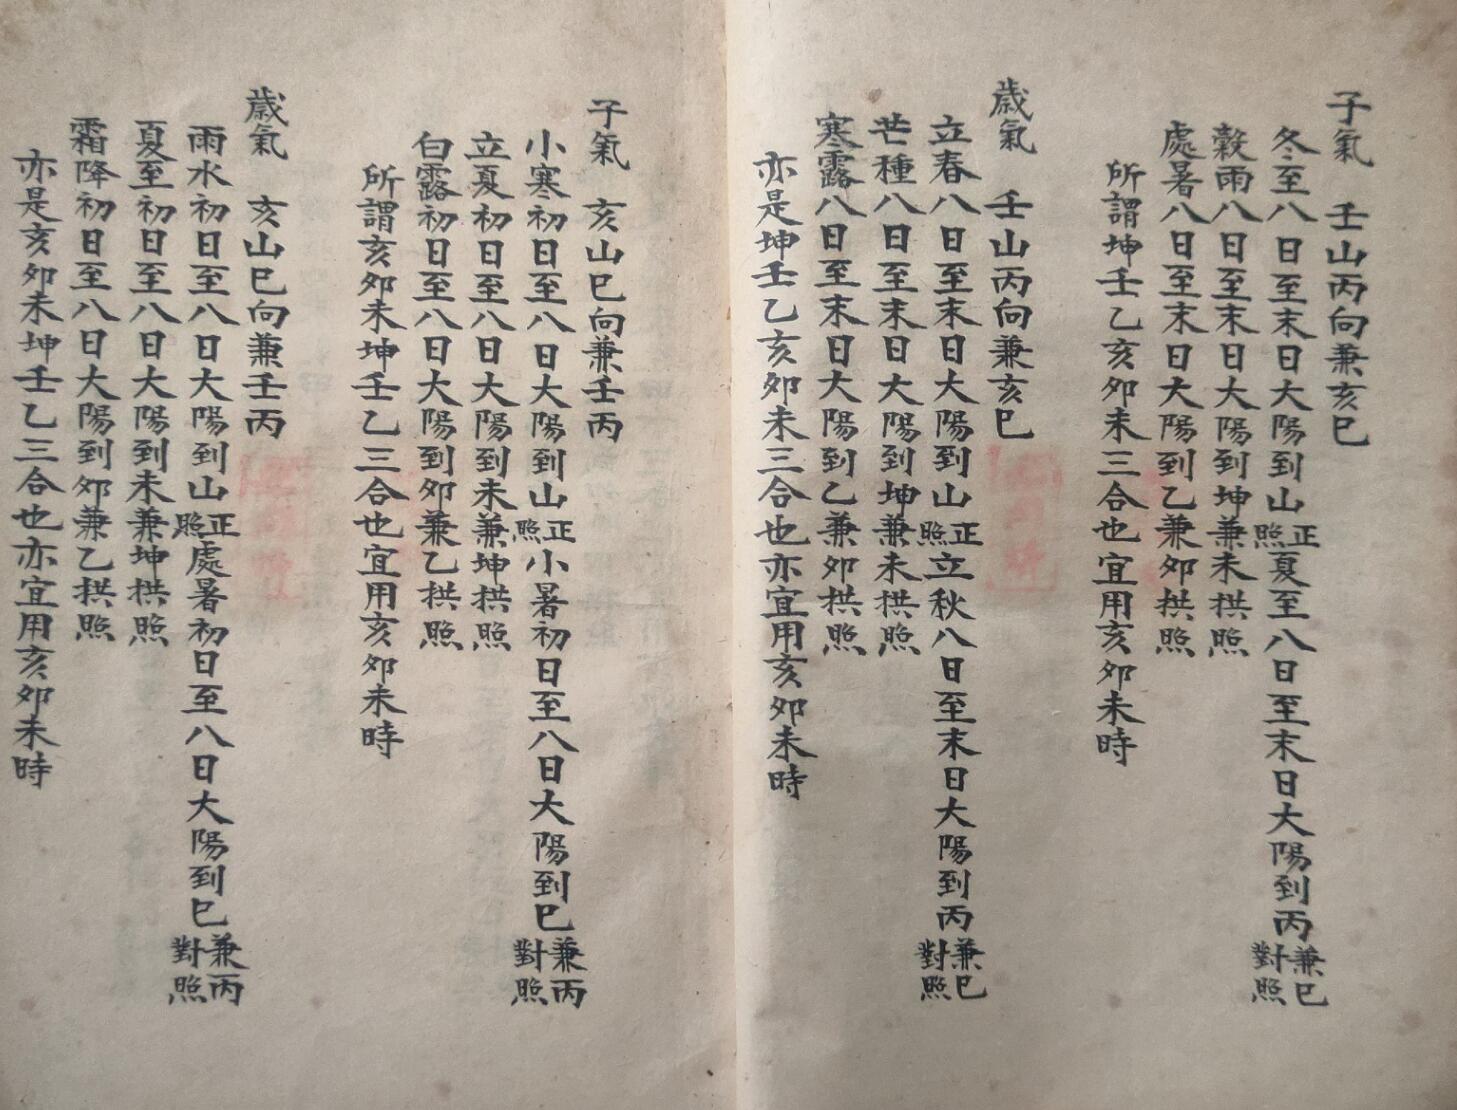 子氣　壬山丙向兼亥巳
冬至八日至末日大陽到山正照夏至八日至末日大陽到丙兼巳對照
穀雨八日至末日大陽到坤兼未拱照
處暑八日至末日大陽到乙兼卯拱照
所謂坤壬乙亥卯未三合也宜用亥卯未時
歲氣　壬山丙向兼亥巳
立春八日至末日大陽到山正照立秋八日至末日大陽到丙兼巳對照
芒種八日至末日大陽到坤兼未拱照
寒露八日至末日大陽到乙兼卯拱照
亦是坤壬乙亥卯未三合也亦宜用亥卯未時
子氣　亥山巳向兼壬丙
小寒初日至八日大陽到山正照小暑初日至八日大陽到巳兼丙對照
立夏初日至八日大陽到未兼坤拱照
白露初日至八日大陽到卯兼乙拱照
所謂亥卯未坤壬乙三合也宜用亥卯未時
歲氣　亥山巳向兼壬丙
雨水初日至八日大陽到山正照處暑初日至八日大陽到巳兼丙對照
夏至初日至八日大陽到未兼坤拱照
霜降初日至八日大陽到卯兼乙拱照
亦是亥卯未坤壬乙三合也亦宜用亥卯未時